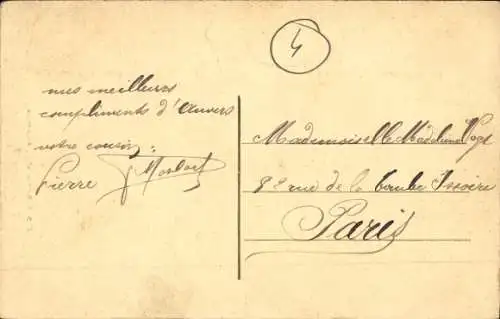 4
mes meilleurs
compliments d'Anvers
votre cousin:
Pierre
Mademoiselle Madeleine
92 rue de la Tombe Issoire
Paris